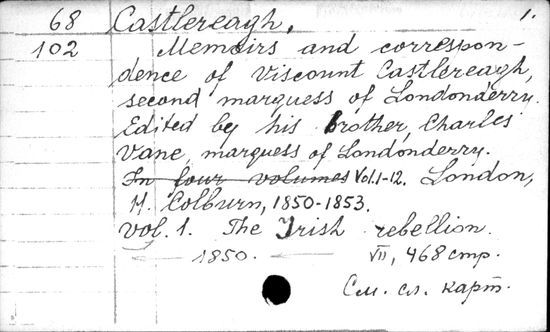 68 Castlereagh, 1.
102 Memoirs and correspon-
dence of Viscount Castlereagh,
second marquess of Londonderry.
Edited by his brother, Charles
Vane, marquess of Londonderry.
In four volumes Vol. 1-12. London,
H. Colburn, 1850-1853.
Vol. 1. The Irish rebellion.
← 1850. ← VII, 468 стр.
См. сл. карт.